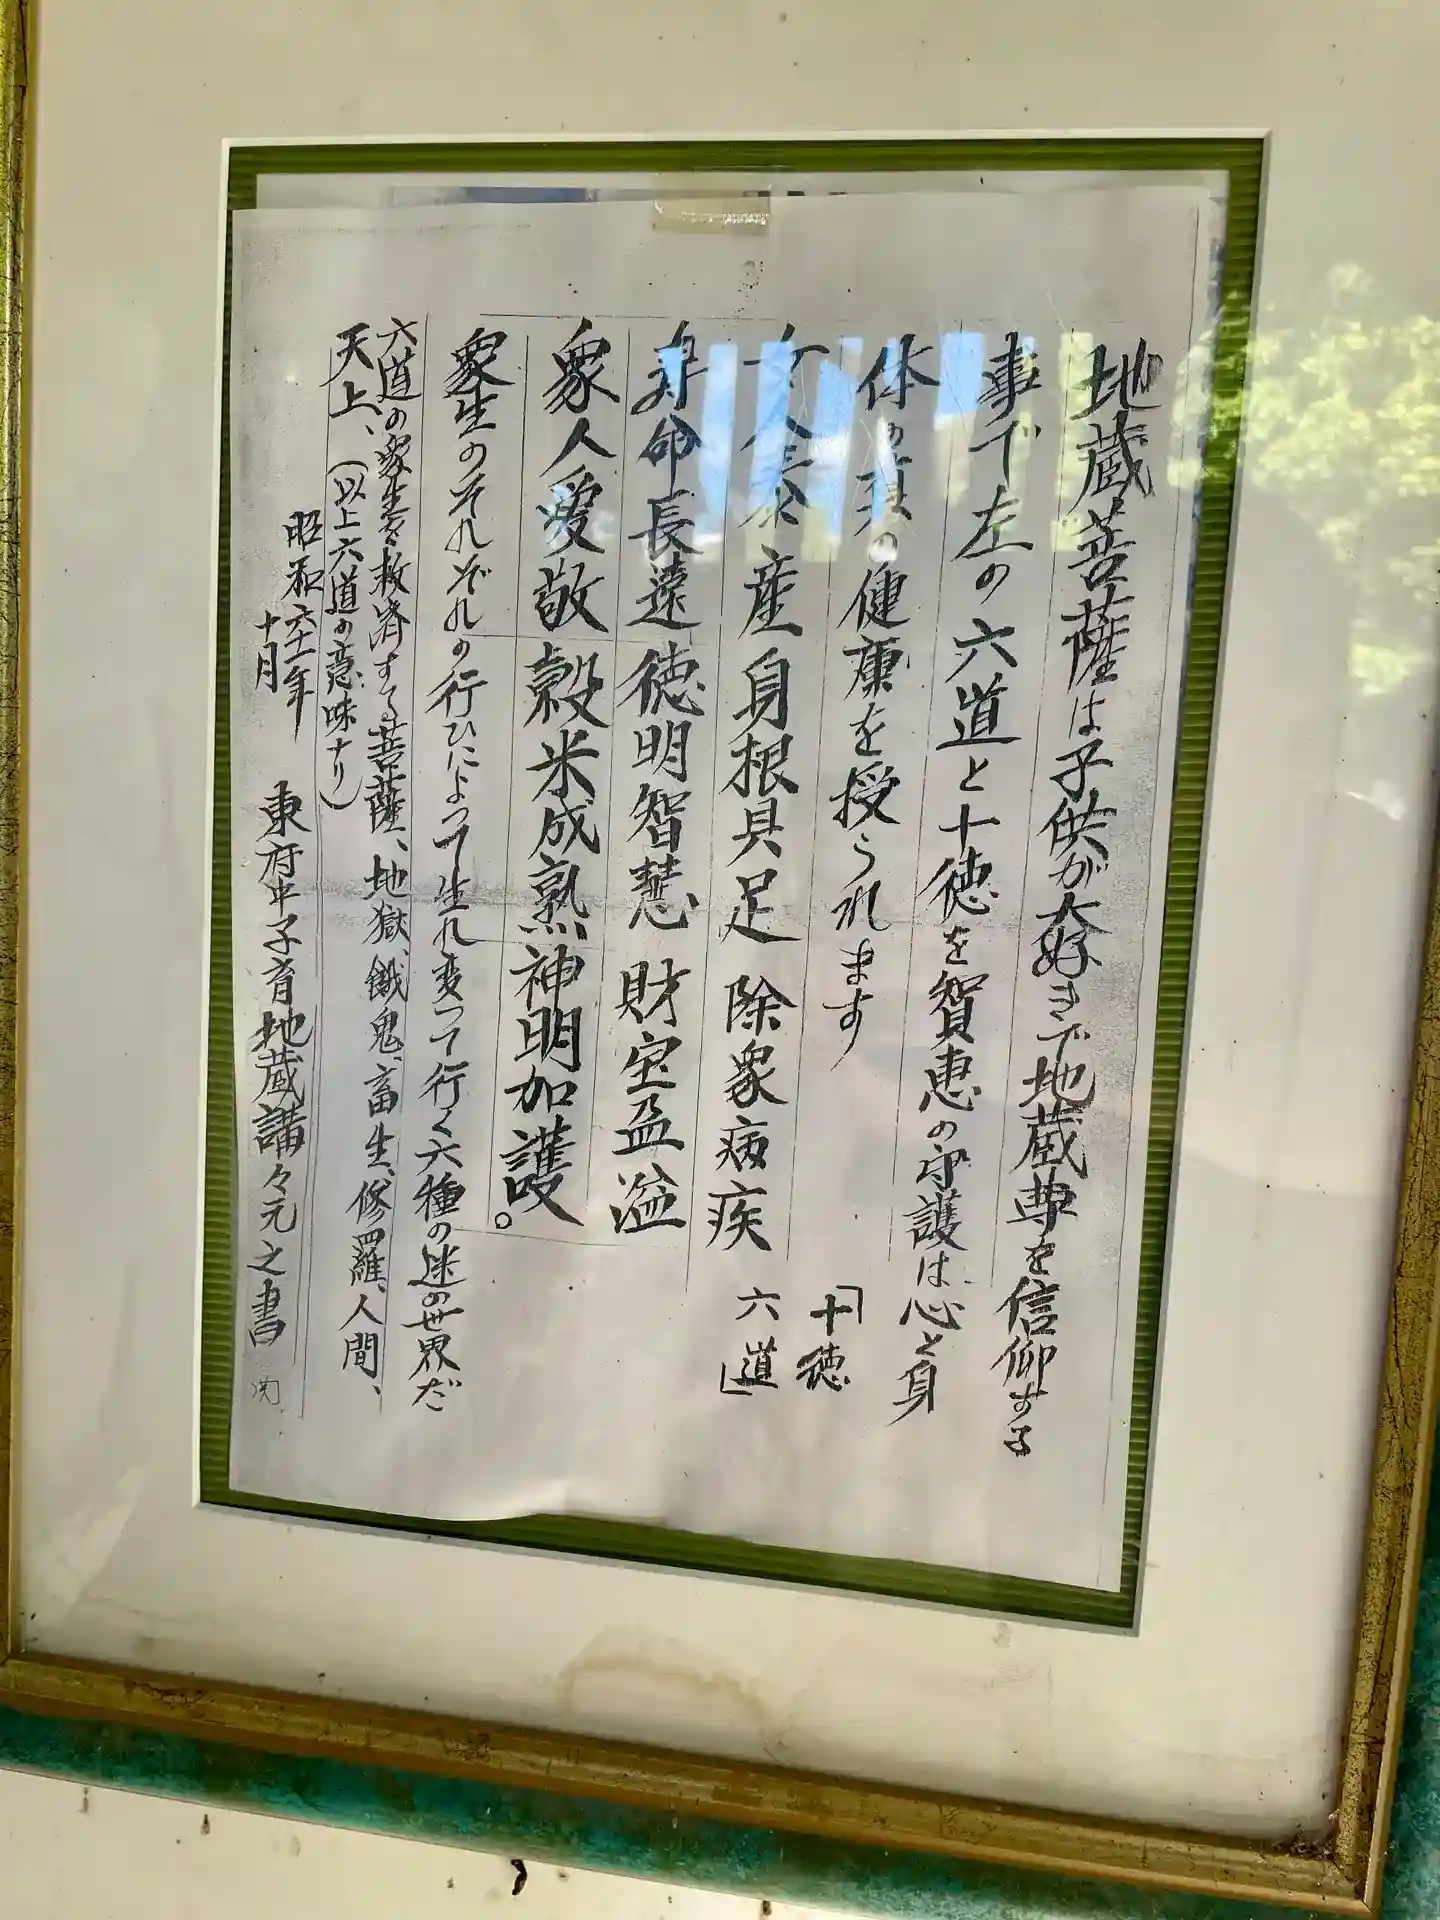 地蔵菩薩は子供が大好きで地蔵尊を信仰する
事で左の六道と十徳を賀恵の守護は心と身
体の真の健康を授られます
「十徳
女人泰産 身根具足 除衆病疾
六道」
寿命長遠 徳明智慧 財宝盈溢
衆人愛敬 穀米成熟 神明加護。
衆生のそれぞれの行ひによって生れ変って行く六種の迷の世界だ
六道の衆生を救済する菩薩、地獄、餓鬼、畜生、修羅、人間、
天上、(以上六道の意味ナリ)
昭和六十一年
十月
東府中子育地蔵講々元之書